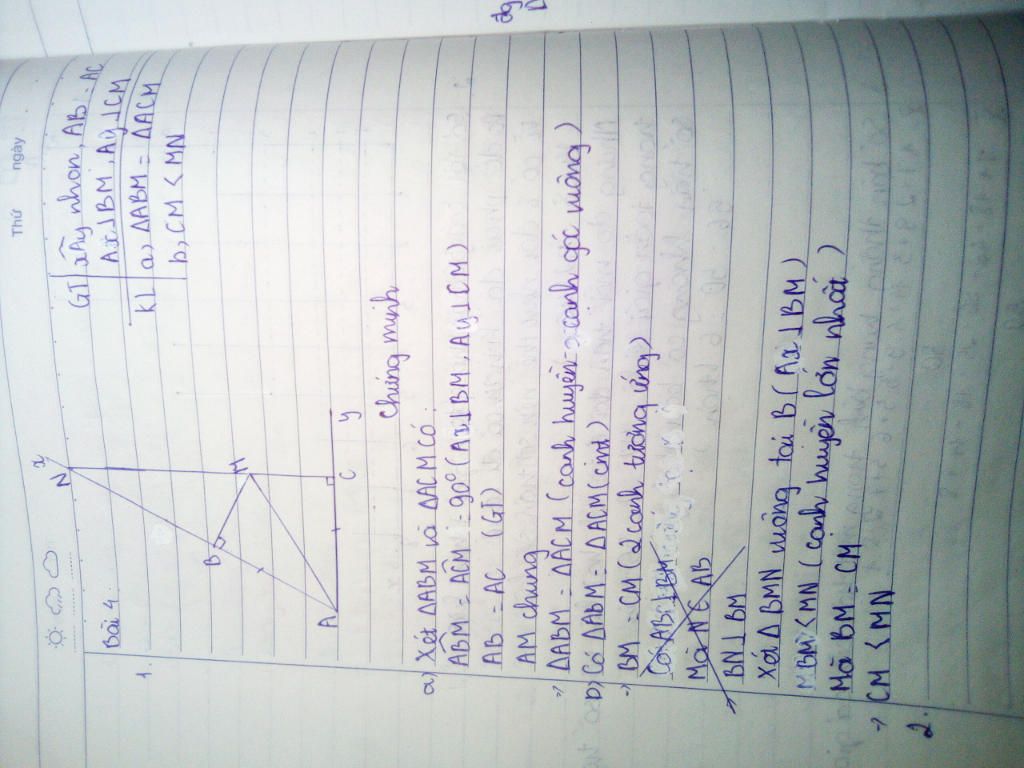 Thứ ngày
Bài 4.
1.
GT xÂy nhọn, AB = AC
Ax⊥BM, Ay⊥CM
KL a, ΔABM = ΔACM
b, CM < MN
N x
B
M
A C y
Chứng minh
a) Xét ΔABM và ΔACM có:
ABM = ACM = 90° (Ax⊥BM, Ay⊥CM)
AB = AC (GT)
AM chung
=> ΔABM = ΔACM (cạnh huyền - cạnh góc vuông)
b) Có ΔABM = ΔACM (cmt)
-> BM = CM (2 cạnh tương ứng)
Có AB⊥BM
Mà N ∈ AB
-> BN⊥BM
Xét ΔBMN vuông tại B (Ax⊥BM)
BM < MN (cạnh huyền lớn nhất)
Mà BM = CM
-> CM < MN
2.